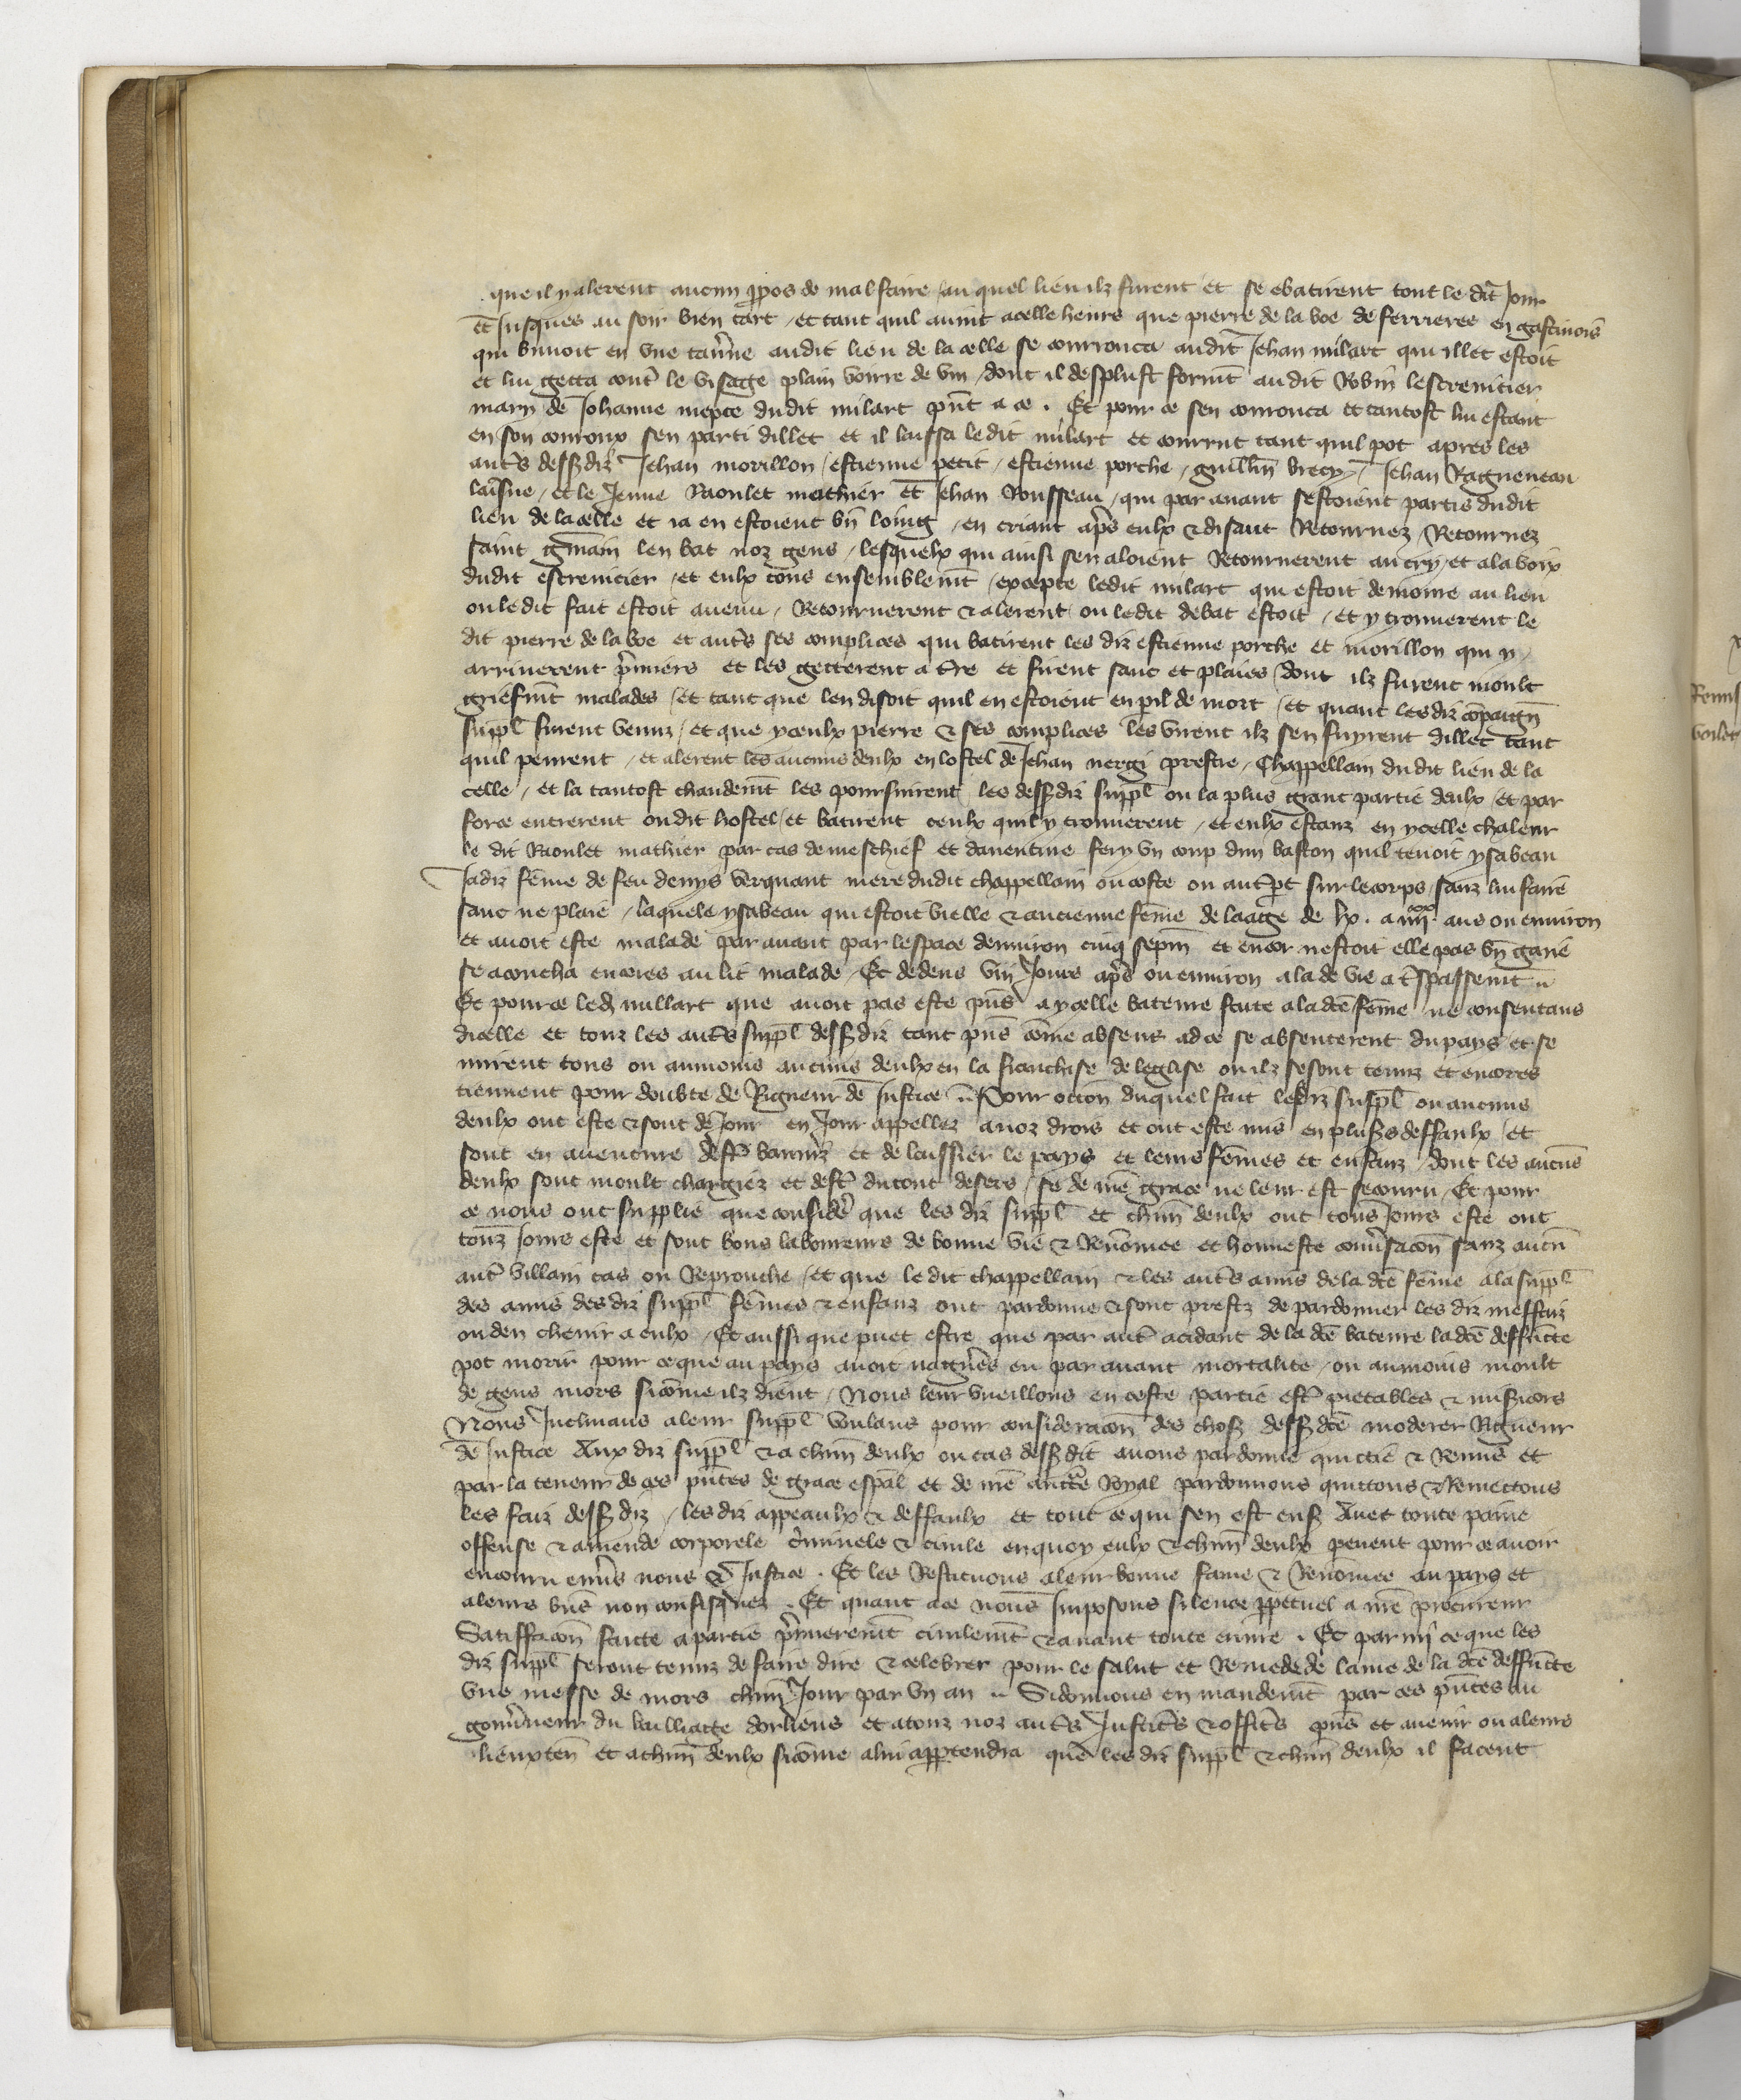 que il y alerent aucun ꝓpos de mal faire / au quel lieu ilz furent et se ebatirent tout le dit Jour
et Jusques au soir bien tart / et tant quil avint a celle heure que pierre de la boe de ferrieres en gastinois
qui buvoit en une tav̄ne audit lieu de la celle se courrouca audit Jehan milart qui illec estoit
et lui getta cont̄ le visage plain voirre de vin / dont il desplust formt̄ audit Robin lescrenicier
mary de Johanne niepce dudit milart p̄nt a ce . Et pour ce sen courouca et tantost lui estant
en son couroux sen parti dillec et il laissa ledit milart et courrut tant quil pot apres les
aut̄s dessdiz Jehan morillon / estienne petit / estienne porche / guillm̄ brecy / Jehan Ragueneau
laisne / et le Jeune Raoulet mathier et Jehan Rousseau / qui par avant sestoient partis dudit
lieu de la celle et ia en estoient bn̄ loing / en criant ap̄s eulx & disant Retournez / Retournez
saint gm̄ain len bat noz gens / lesquelx qui ainsi sen aloient Retournerent au cry / et a la voix
dudit escrenicier / et eulx tous ensemblemt̄ / excepte ledit milart qui estoit demoure au lieu
ou ledit fait estoit avenu / Retournerent & alerent ou ledit debat estoit / et y trouverent le
dit pierre de la boe et aut̄s ses complices qui batirent les diz estienne porche et morillon qui y
arriverent p̄miers et les getterent a t̄re et firent sanc et plaies / dont ilz furent moult
griefmt̄ malades / et tant que len disoit quil en estoient en ꝑil de mort / et quant les diz cōpaign̄
suppl̄ furent venuz / et que yceulx pierre & ses complices les virent ilz sen fuyrent dillec tant
quil peurent / et alerent les aucuns deulx en lostel de Jehan nergi prestre / chappellain dudit lieu de la
celle / et la tantost chaudemt̄ les poursuirent les dessdiz suppl̄ ou la plus grant partie deulx / et par
force entrerent oudit hostel / et batirent ceulx quil y trouverent / et eulx estanz en ycelle chaleur
le dit Raoulet mathier par cas de meschief et daventure fery un coup dun baston quil tenoit ysabeau
Jadiz fēme de feu denys verquant mere dudit chappellain ou coste ou aut̄ ꝑt sur le corps / sanz lui faire
sanc ne plaie / laquele ysabeau qui estoit vielle & ancienne fēme de laage de lx . a iiii.xx ans ou environ
et avoit este malade par avant par lespace denviron cinq sepm̄ et encor nestoit elle pas bn̄ garie
se acoucha encores au lit malade / Et dedens viii Jours ap̄s ou environ ala de vie a t̄spassemt̄ ..
Et pour ce led millart que avoit pas este p̄ns a ycelle bateure faite a la dc̄e fēme ne consentans
dicelle et touz les aut̄s suppl̄ dessdiz tant p̄ns cōme absens ad ce se absenterent du pays et se
mirent tous ou aumoins aucuns deulx en la franchise de leglise ou ilz se sont tenuz et encores
tiennent pour doubte de Rigueur de Justice .. Pour ocōn duquel fait lesdiz suppl̄ ou aucuns
deulx ont este & sont de Jour en Jour appellez a noz drois et ont este mis en plus̄s deffaulx / et
sont en aventure dest̄ banniz et de laissier le pays et leurs fēmes et enfanz / dont les aucuns
deulx sont moult chargiez et dest̄ du tout desers / se de nr̄e grace ne leur est secouru / Et pour
ce nous ont supplie que consid̄e que les diz suppl̄ et chūn deulx ont tous Jours este ont
touz Jours este et sont bons laboureurs de bonne vie & Renōmee et honneste conv̄sacōn sanz aucun
aut̄ villain cas ou Reprouche / et que le dit chappellain & les aut̄s amis de la dc̄e fēme a la suppl̄
des amis des diz suppl̄ fēmes & enfanz ont pardonne & sont prestz de pardonner les diz meffaiz
ou den chevir a eulx / Et aussi que puet estre que par aut̄ acidant de la dc̄e bateure la dc̄e deffuncte
pot morir pour ce que au pays avoit nagueres eu par avant mortalite / ou aumoins moult
de gens mors sicōme ilz dient / Nous leur vueillons en ceste partie est̄ piteables & mis̄icors
Nous Inclinans a leur suppl̄ voulans pour consideracōn des chos̄ dess̄dc̄e moderer Rigueur
de Justice Aux diz suppl̄ & a chūn deulx ou cas dess̄dit avons pardonne quictie & Remis et
par la teneur de ces p̄ntes de grace esp̄al et de nr̄e auctͭe Royal pardonnons quittons & Remettons
les faiz dess̄ diz / les diz appeaulx & deffaulx et tout ce qui sen est ens̄ Avec toute paine
offense & amende corporele c̄minele & civile en quoy eulx & chūn deulx pevent pour ce avoir
encouru env̄s nous & Justice . Et les Restituons a leur bonne fame & Renōmee au pays et
a leurs biens non confisquez . Et quant a ce nous Imposons silence ꝑpetuel a nr̄e procureur
Satisfacōn faicte a partie p̄mieremt̄ civilemt̄ & avant toute euvre . Et parmi ce que les
diz suppl̄ seront tenuz de faire dire & celebrer pour le salut et Remede de lame de la dc̄e deffuncte
une messe de mors chūn Jour par un an .. Si donnons en mandemt̄ par ces p̄ntes au
gouv̄neur du bailliage dorliens et a touz noz aut̄s Justic̄s & offic̄s p̄ns et avenir ou a leurs
lieuxten̄ et a chūn deulx sicōme a lui appartendra que les diz suppl̄ & chūn deulx il facent